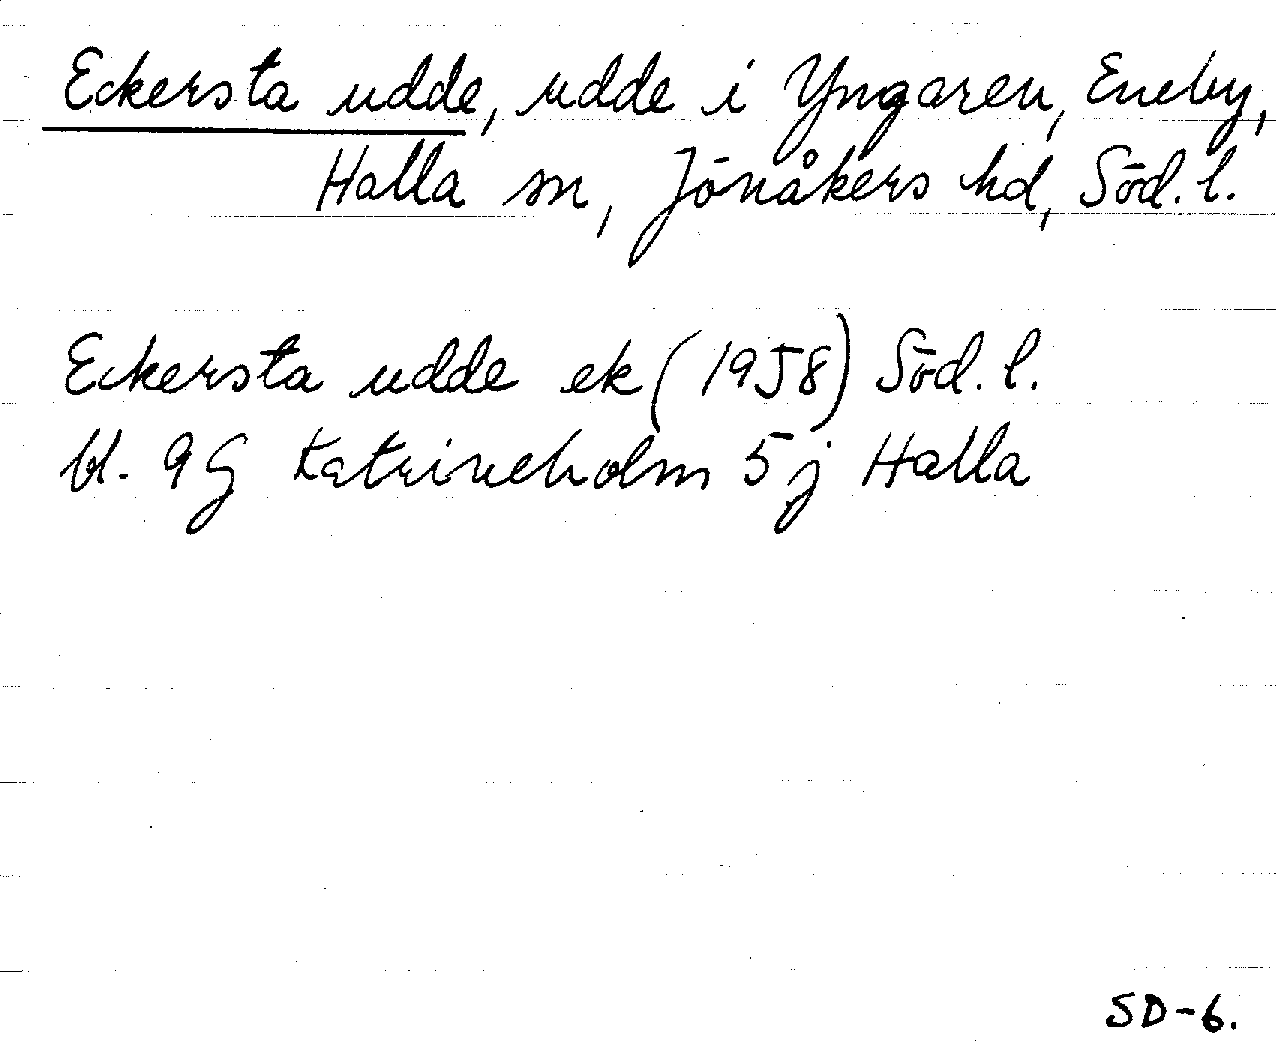 Eckersta udde, udde i Yngaren, Eneby,
Halla sn, Jönåkers hd, Söd. l.
Eckersta udde ek (1958) Söd. l.
bl. 9G Katrineholm 5j Halla
SD-6.